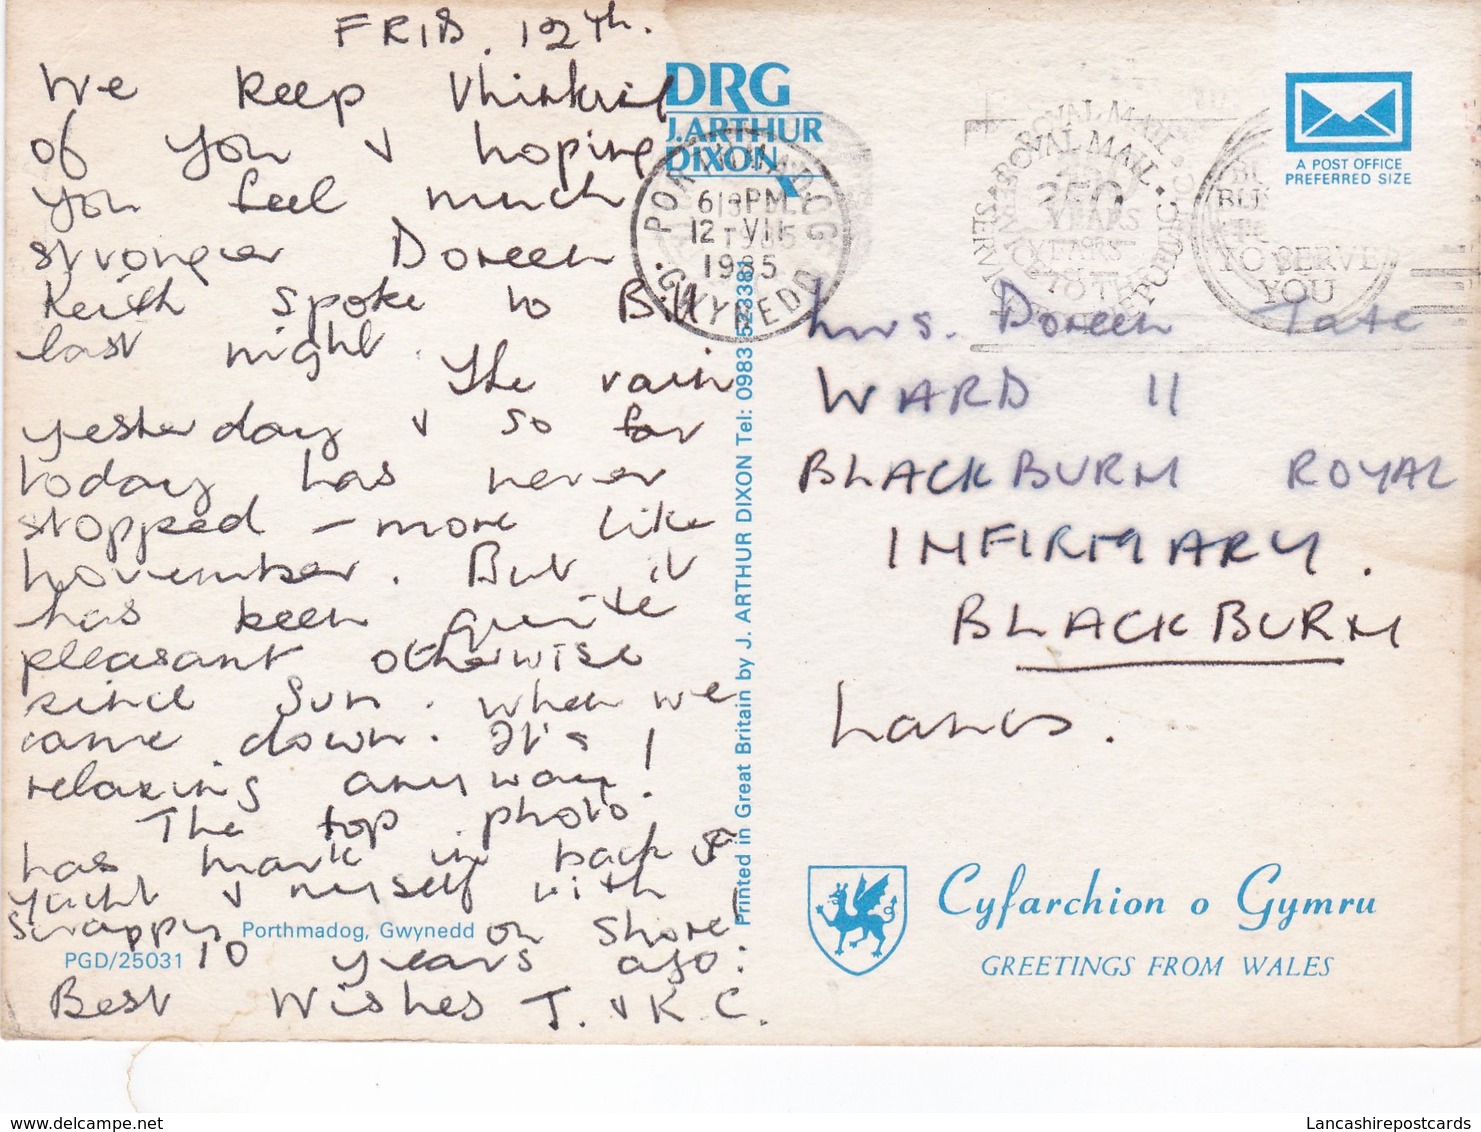 FRID. 12th.
We keep thinking
of you & hoping
you feel much
stronger Doreen
Keith spoke to Bill
last night. The rain
yesterday & so far
today has never
stopped – more like
November. But it
has been quite
pleasant otherwise
since Sun. when we
came down. It's
relaxing anyway!
The top photo,
has Mark in back of
yacht & myself with
Scrappy on shore
10 years ago.
Best Wishes T. & K. C.
Porthmadog, Gwynedd
PGD/25031
DRG
J. ARTHUR
DIXON
PORTHMADOG
6 PM
12 VII
1985
GWYNEDD
Printed in Great Britain by J. ARTHUR DIXON Tel: 0983 523381
ROYAL MAIL
350
YEARS
OF
SERVICE
TO THE
PUBLIC
TO SERVE
YOU
A POST OFFICE
PREFERRED SIZE
Mrs. Doreen Tate
WARD 11
BLACKBURN ROYAL
INFIRMARY.
BLACKBURN
Lancs.
Cyfarchion o Gymru
GREETINGS FROM WALES
delcampe.net
Lancashirepostcards